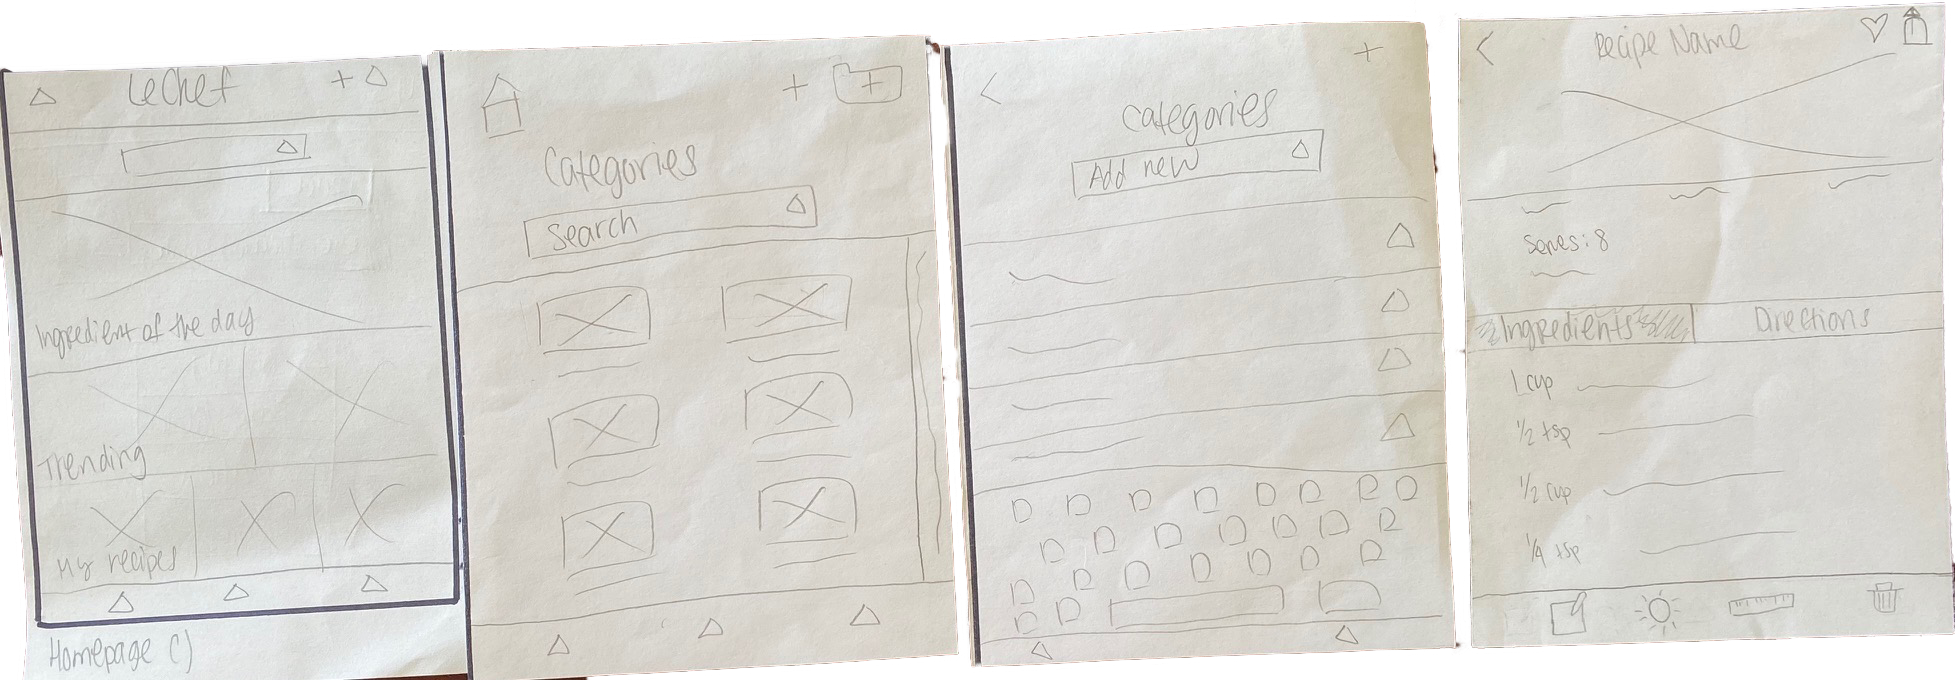 LeChef
Ingredient of the day
Trending
My recipes
Homepage C)
Categories
Search
Categories
Add new
Recipe Name
Serves: 8
Ingredients
Directions
1 cup
1/2 tsp
1/2 cup
1/4 tsp